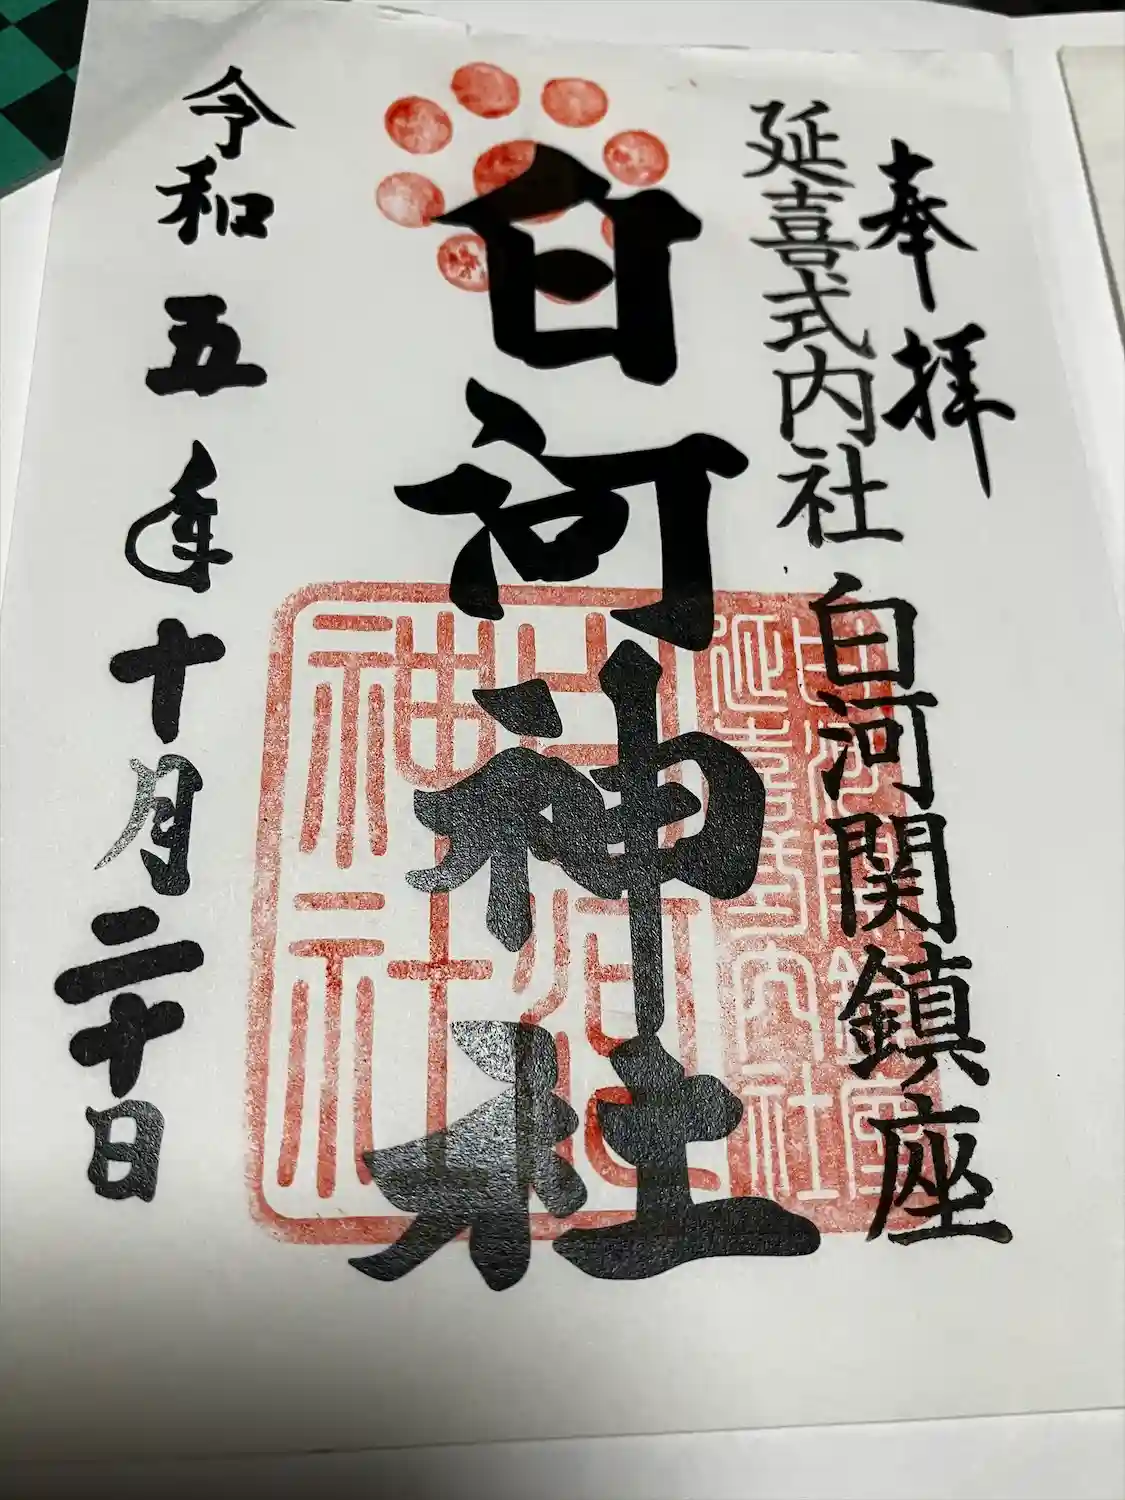 奉拝
延喜式内社 白河関鎮座
白河神社
令和五年十月二十日
白河関鎮座
延喜式内社
白河
神社